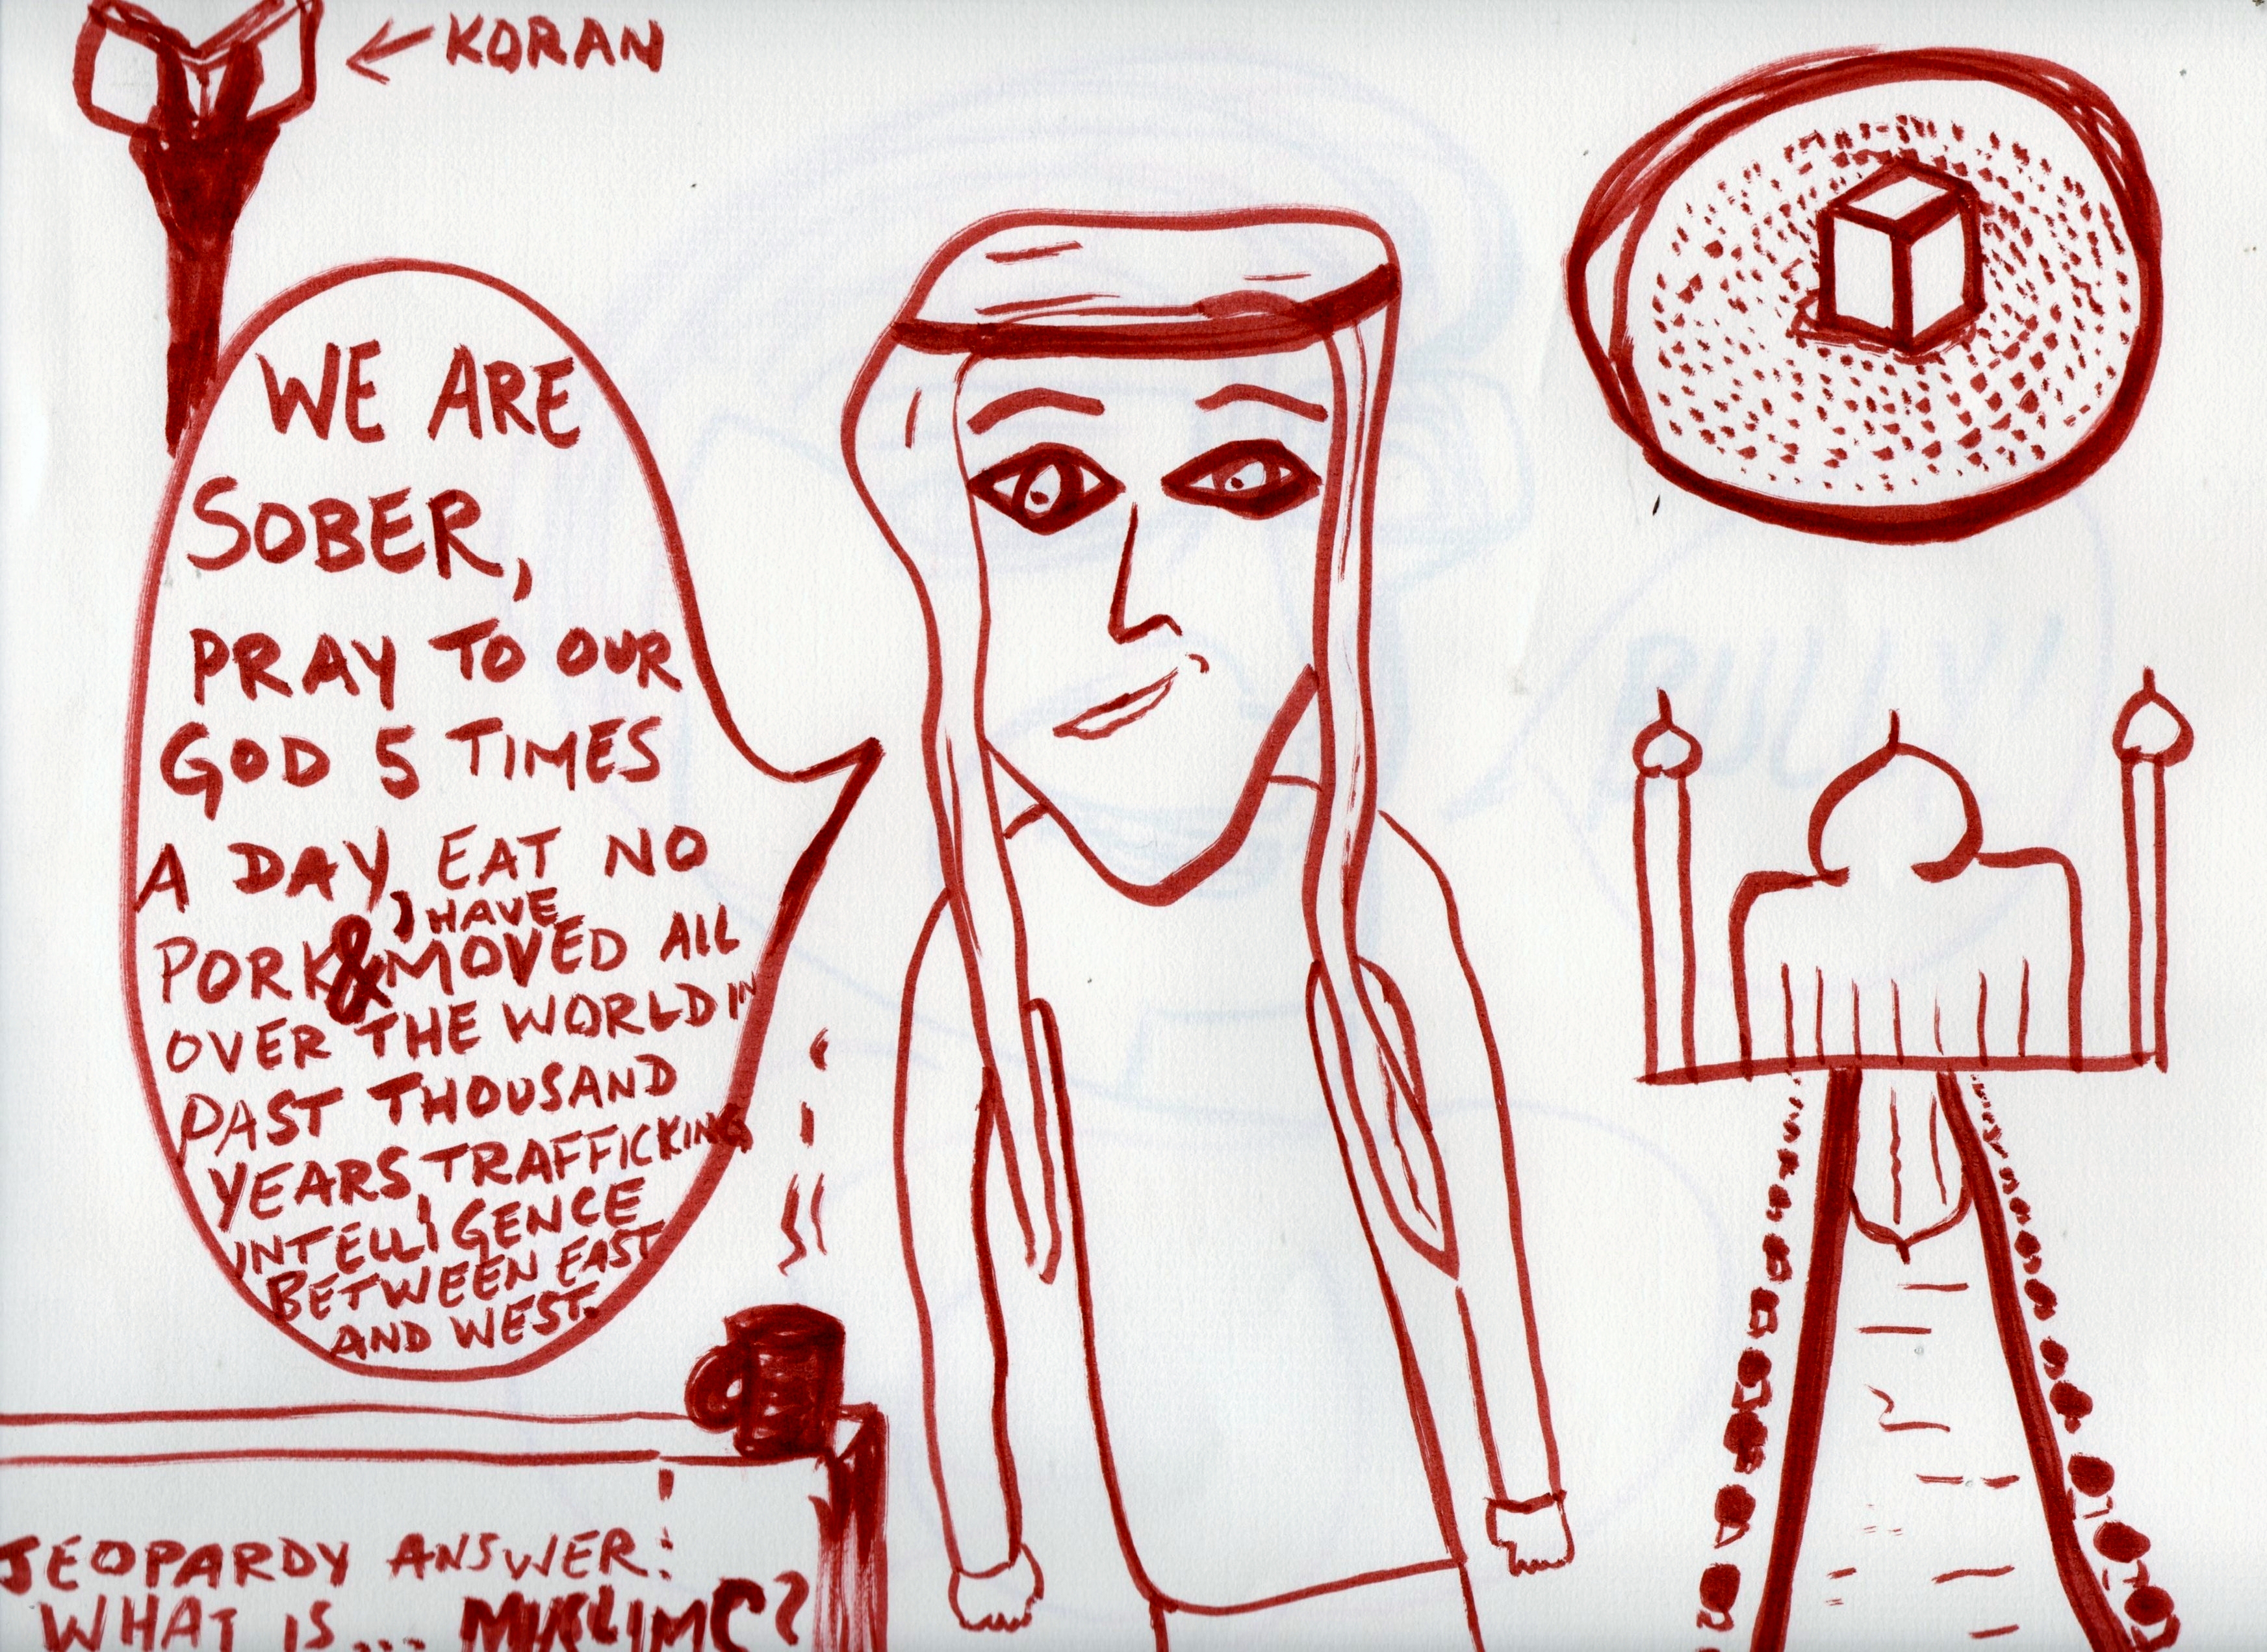 KORAN
WE ARE
SOBER,
PRAY TO OUR
GOD 5 TIMES
A DAY, EAT NO
, HAVE
PORK & MOVED ALL
OVER THE WORLD IN
PAST THOUSAND
YEARS TRAFFICKING
INTELLIGENCE
BETWEEN EAST
AND WEST.
JEOPARDY ANSWER:
WHAT IS... MUSLIMS?
BULLY!